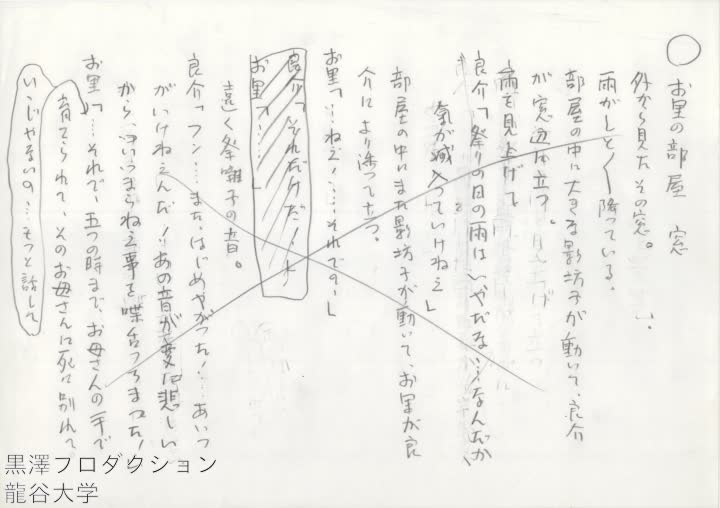 ○ お里の部屋 窓
外から見たその窓。
雨がしと〱降っている。
部屋の中に大きな影坊子が動いて、良介
が窓辺に立つ。
雨を見上げて
良介「祭りの日の雨はいやだなぁ…なんだか、
気が滅入っていけねえ」
部屋の中にまた影坊子が動いて、お里が良
介により添って立つ。
お里「…ねえ！……それで？」
良介「それだけだ！」
お里「……」
遠く祭囃子の音。
良介「フン……また、はじめやがった！……あいつ
がいけねえんだ！あの音が変に悲しい
から、ついつまらねえ事を喋舌っちまった！
お里「…それで、五つの時まで、お母さんの手で
育てられて、そのお母さんに死に別れて
いゝじゃないの…もっと話して
黒澤プロダクション
龍谷大学